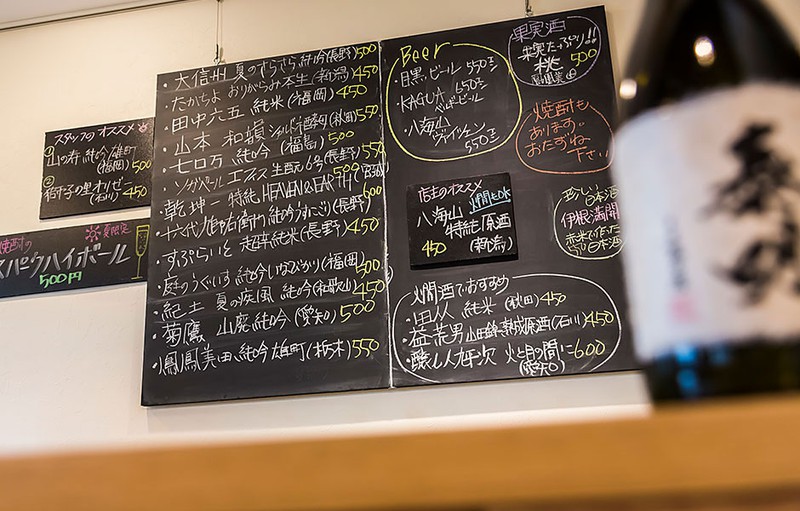 スタッフのオススメ
①山の寿 純吟 雄町
(福岡) 500
②
(石川) 450
夏限定
焼酎の
スパークハイボール
500円
・大信州 夏のさらさら純吟(長野)500
・たかちよ おりがらみ本生(新潟)450
・田中六五 純米(福岡)450
・山本 和韻
(秋田)550
・七ロ万 純吟(福島)500
・ソガペール エフィス 生酛 6号(長野)550
・乾坤一 特純 HEAVEN&EARTH(宮城)
・十六代九郎右衛門 純吟
(長野)600
・すぷらいと 超辛純米(長野)450
・庭のうぐいす 純吟
(福岡)500
・紀土 夏の疾風 純吟(和歌山)450
・菊鷹 山廃純吟(愛知)500
・鳳凰美田 純吟 雄町(栃木)550
Beer
・目黒ビール 550
・KAGUA 650
・八海山
ヴァイツェン
550
果実酒
果実たっぷり!!
桃 500
鳳凰美田
焼酎も
あります。
おたずね
下さい
店主のオススメ
八海山
特純/原酒
450 (新潟)
珍しい日本酒
伊根満開
赤米で作った
日本酒
燗酒でおすすめ
・田从 純米(秋田)450
・益荒男 山田錦 熟成原酒(石川)450
・醸し人九平次 火と月の間に600
(愛知)